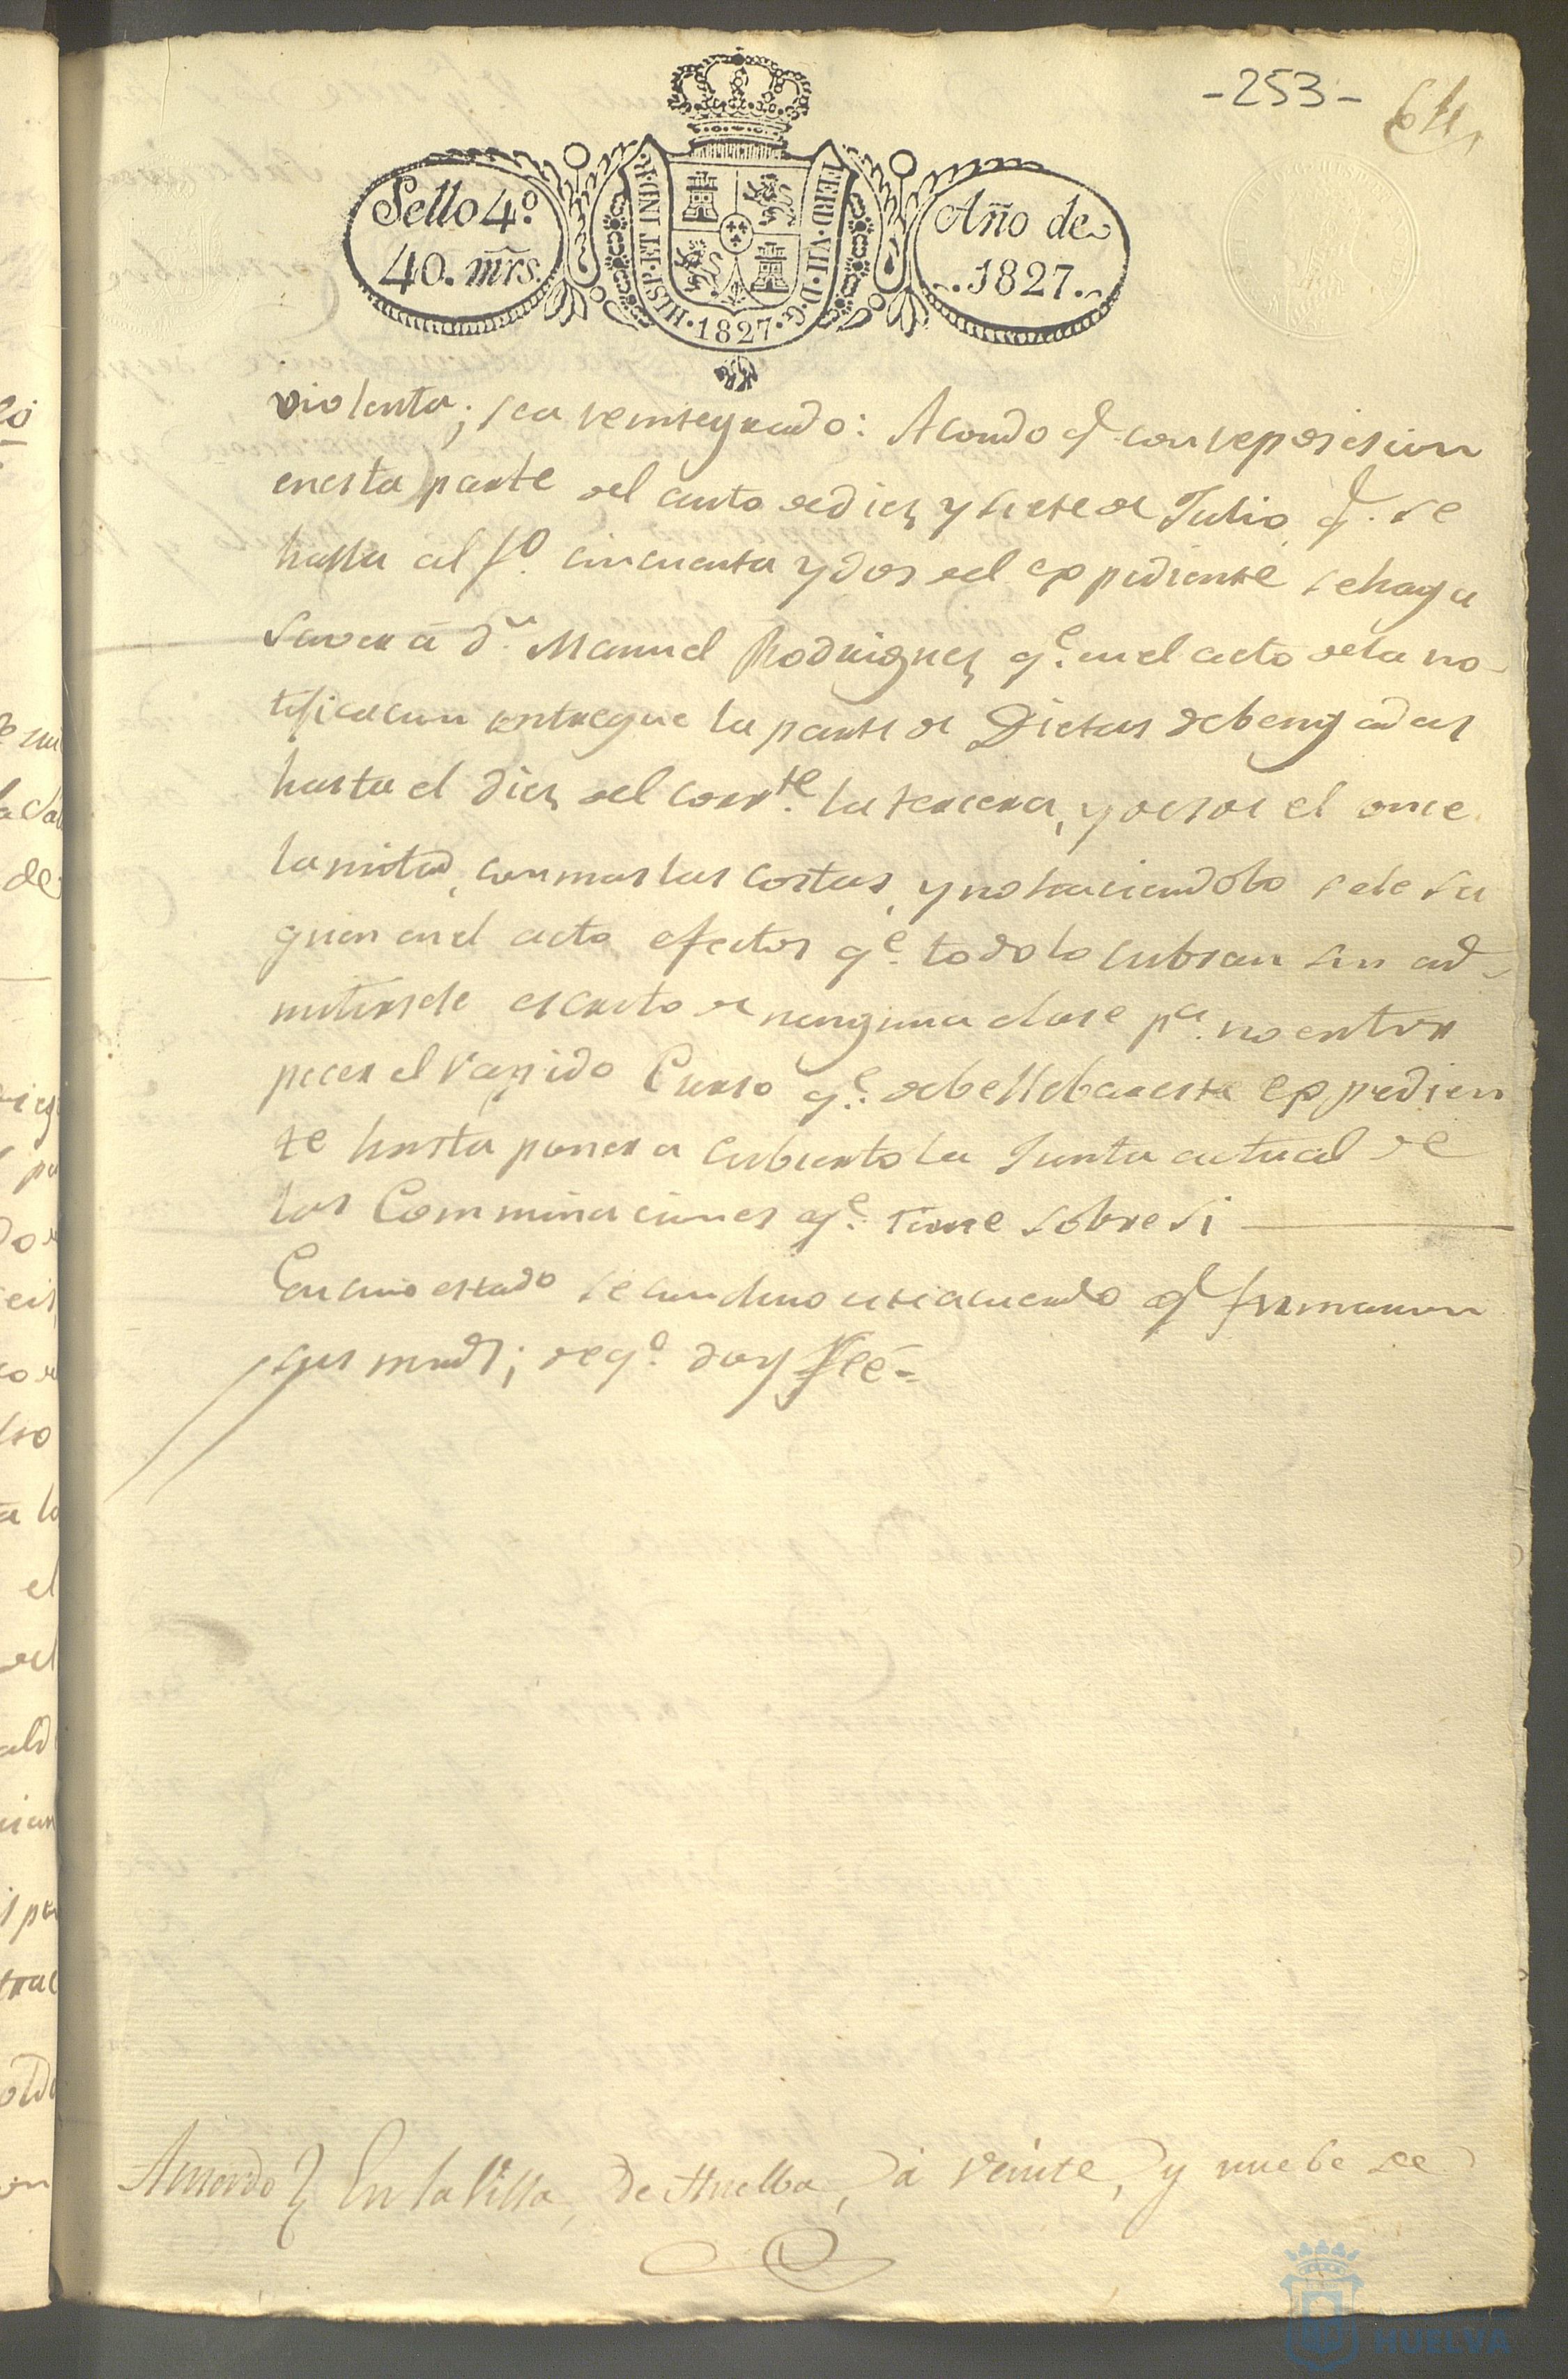 -253-
64
Sello 4º.
40. mrs.
HISP. ET IND. R.
FERD. VII. D. G.
1827.
Año de
1827.
violenta; sea reintegrado: Acordo q. con reposicion
en esta parte del auto de diez y siete de Julio q. se
halla al fº. cincuenta y dos del expediente se haga
saver a dn. Manuel Rodriguez qe. en el acto de la no-
tificacion entregue la parte de Dietas debengadas
hasta el diez del corrte. la tercera, y desde el once
la mitad, con mas las costas, y no haciendolo se le sa
quen en el acto efectos qe. todo lo cubran sin ad-
mitirsele escrito de ninguna clase pa. no entor
pecer el rapido Curso qe. debe llebar este expedien
te hasta poner a cubierto la Junta actual de
las Comminaciones qe. tiene sobre si
En cuio estado se concluyo este acuerdo q. firmaron
sus mrds; de qº. doy fee-
Acuerdo En la Villa, de Huelba, à veinte, y nuebe de
HUELVA